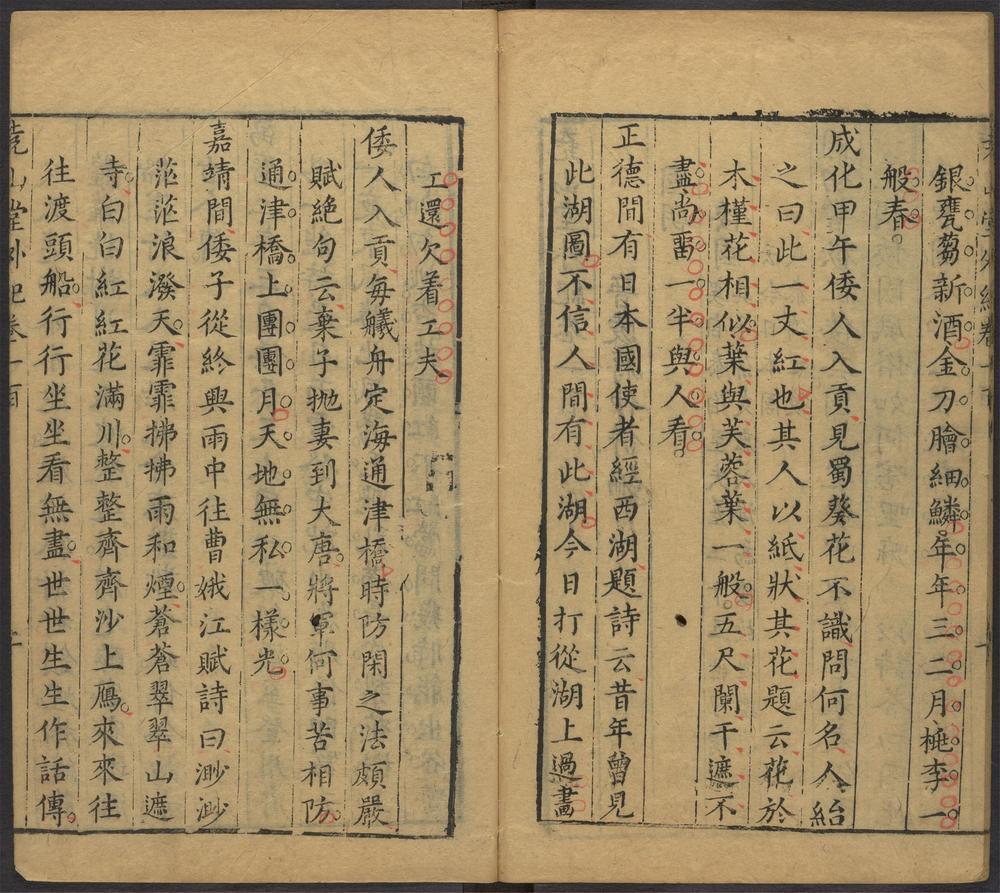 銀甕蒭新酒金刀膾細鱗年年三二月桃李一
般春
成化甲午倭人入貢見蜀葵花不識問何名人紿
之曰此一丈紅也其人以紙狀其花題云花於
木槿花相似葉與芙蓉葉一般五尺闌干遮不
盡尚畱一半與人看
正德間有日本國使者經西湖題詩云昔年曾見
此湖圖不信人間有此湖今日打從湖上過畫
工還欠着工夫
倭人入貢每艤舟定海通津橋時防閑之法頗嚴
賦絕句云棄子抛妻到大唐將軍何事苦相防
通津橋上團團月天地無私一樣光
嘉靖間倭子從終興雨中往曹娥江賦詩曰渺渺
茫茫浪潑天霏霏拂拂雨和煙蒼蒼翠翠山遮
寺白白紅紅花滿川整整齊齊沙上鴈來來往
往渡頭船行行坐坐看無盡世世生生作話傳
堯山堂外紀卷一百